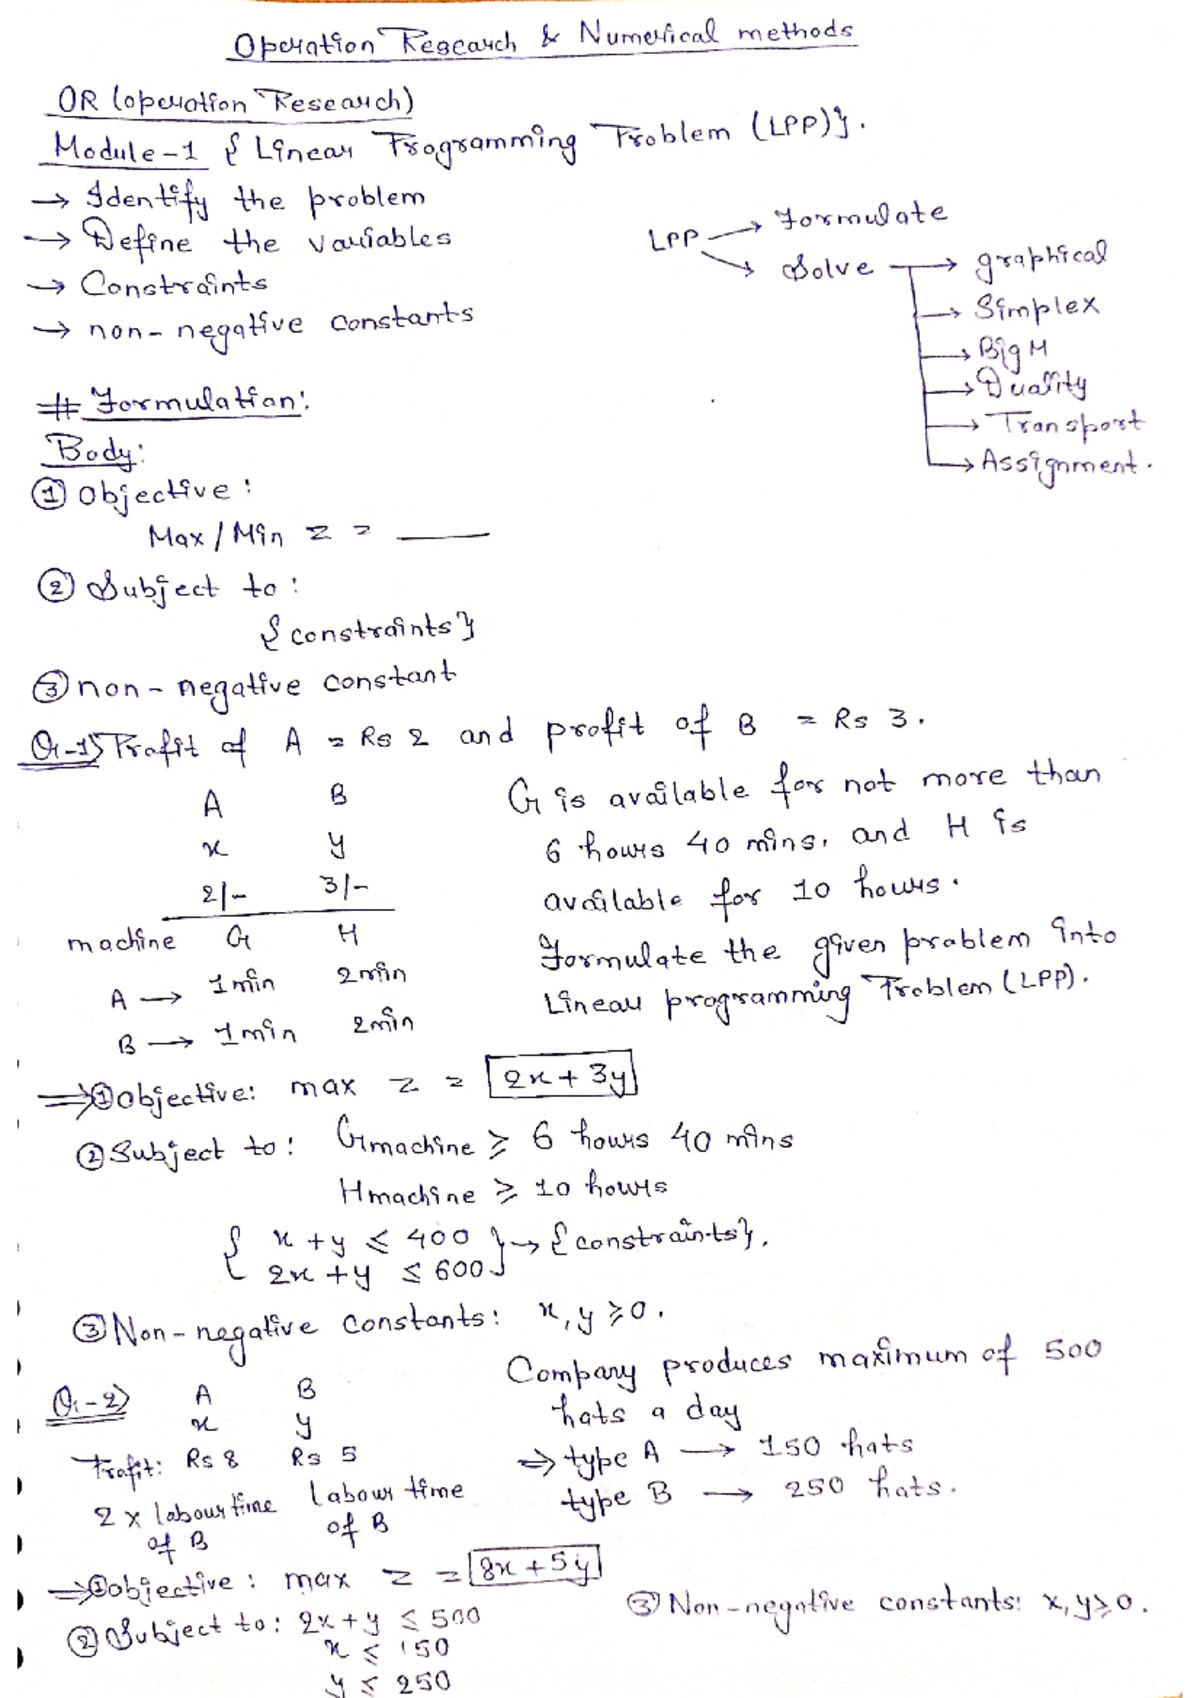 Operation Research & Numerical methods
OR (operation Research)
Module-1 { Linear Programming Problem (LPP)}.
→ Identify the problem
→ Define the variables
→ Constraints
→ non-negative constants
LPP → Formulate
→ Solve → graphical
→ Simplex
→ Big M
→ Duality
→ Transport
→ Assignment.
# Formulation:
Body:
① Objective:
Max / Min z = ____
② Subject to:
{constraints}
③ non-negative constant
Q-1) Profit of A = Rs 2 and profit of B = Rs 3.
A B
x y
2/- 3/-
machine G H
A → 1min 2min
B → 1min 2min
G is available for not more than
6 hours 40 mins. and H is
available for 10 hours.
Formulate the given problem into
Linear programming Problem (LPP).
⇒ ① objective: max z = 2x + 3y
② Subject to: Gmachine ≥ 6 hours 40 mins
Hmachine ≥ 10 hours
{ x + y ≤ 400 } → {constraints}.
2x + y ≤ 600
③ Non-negative constants: x, y ≥ 0.
Q-2) A B
x y
Profit: Rs 8 Rs 5
2 x labour time labour time
of B of B
Company produces maximum of 500
hats a day
⇒ type A → 150 hats
type B → 250 hats.
⇒ ① objective: max z = 8x + 5y
② Subject to: 2x + y ≤ 500
x ≤ 150
y ≤ 250
③ Non-negative constants: x, y ≥ 0.